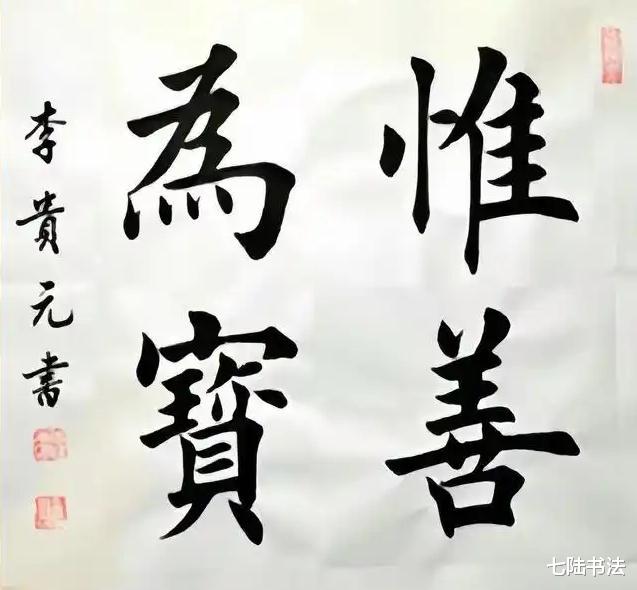 惟善
為寳
李貴元書
七陆书法